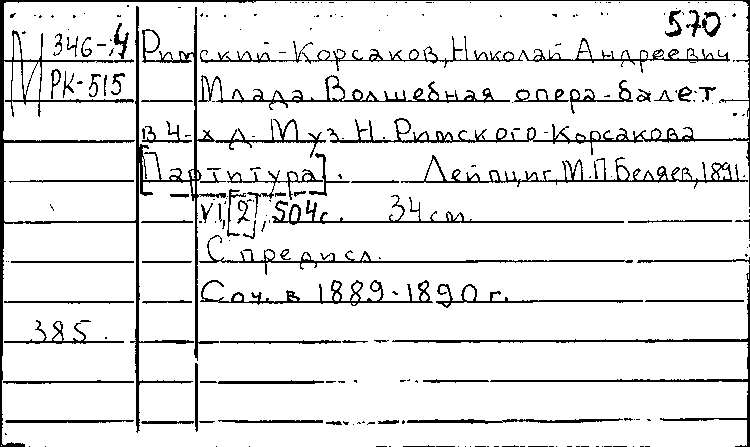 570
М 346-4 Римский-Корсаков, Николай Андреевич
РК-515 Млада. Волшебная опера-балет
в 4-х д. Муз. Н. Римского-Корсакова
[Партитура]. Лейпциг, М.П.Беляев, 1891.
VI, [2], 504 с. 34 см.
С предисл.
Соч. в 1889-1890 г.
385.